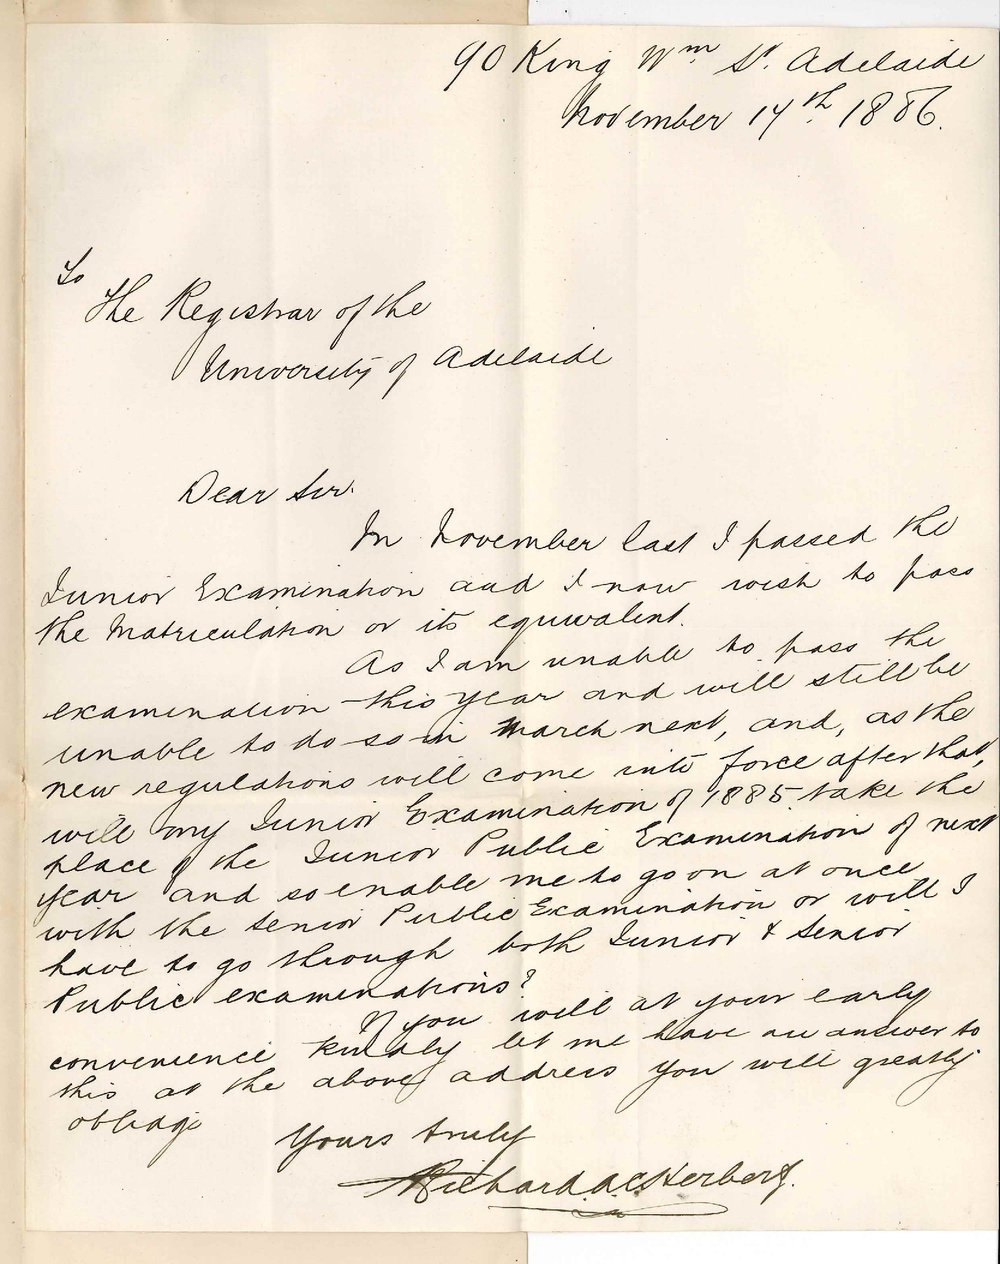 90 King Wm St. Adelaide
November 14th 1886.
To
The Registrar of the
University of Adelaide
Dear Sir.
In November last I passed the
Junior Examination and I now wish to pass
the Matriculation or its equivalent.
As I am unable to pass the
examination this year and will still be
unable to do so in March next, and, as the
new regulations will come into force after that,
will my Junior Examination of 1885 take the
place of the Junior Public Examination of next
year and so enable me to go on at once
with the Senior Public Examination or will I
have to go through both Junior & Senior
Public examinations?
If you will at your early
convenience kindly let me have an answer to
this at the above address you will greatly
obledge
Yours truly
Richard Herbert.